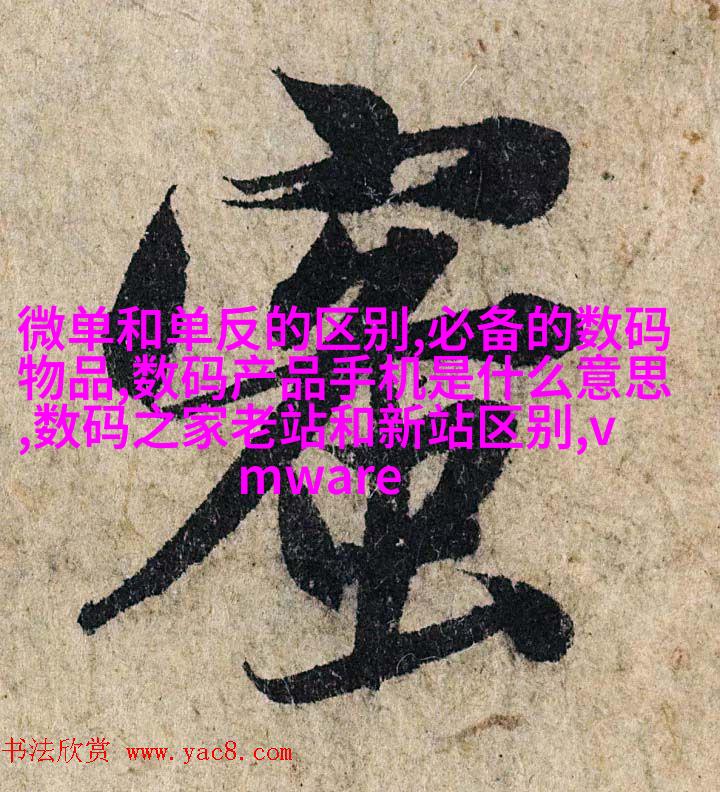 微单和单反的区别,必备的数码
物品,数码产品手机是什么意思
,数码之家老站和新站区别,v
mware
书法欣赏 www.yac8.com